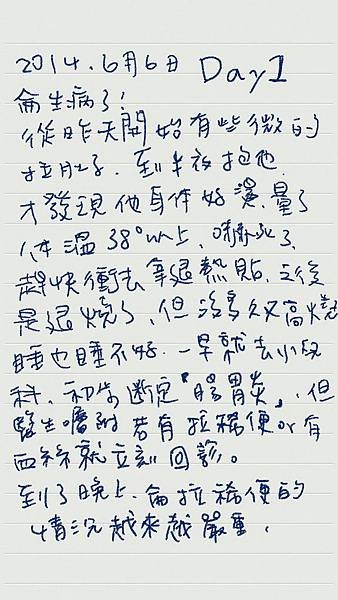 2014.6月6日 Day1
侖生病了!
從昨天開始有些微的
拉肚子,到半夜抱他
才發現他身体好燙.量了
体溫38°以上,嚇死了,
趕快衝去拿退熱貼,之後
是退燒了,但沒多久又高燒
睡也睡不好.一早就去小兒
科.初步斷定"腸胃炎",但
醫生囑咐若有拉稀便or有
血絲就立刻回診。
到了晚上.侖拉稀便的
情況越來越嚴重,